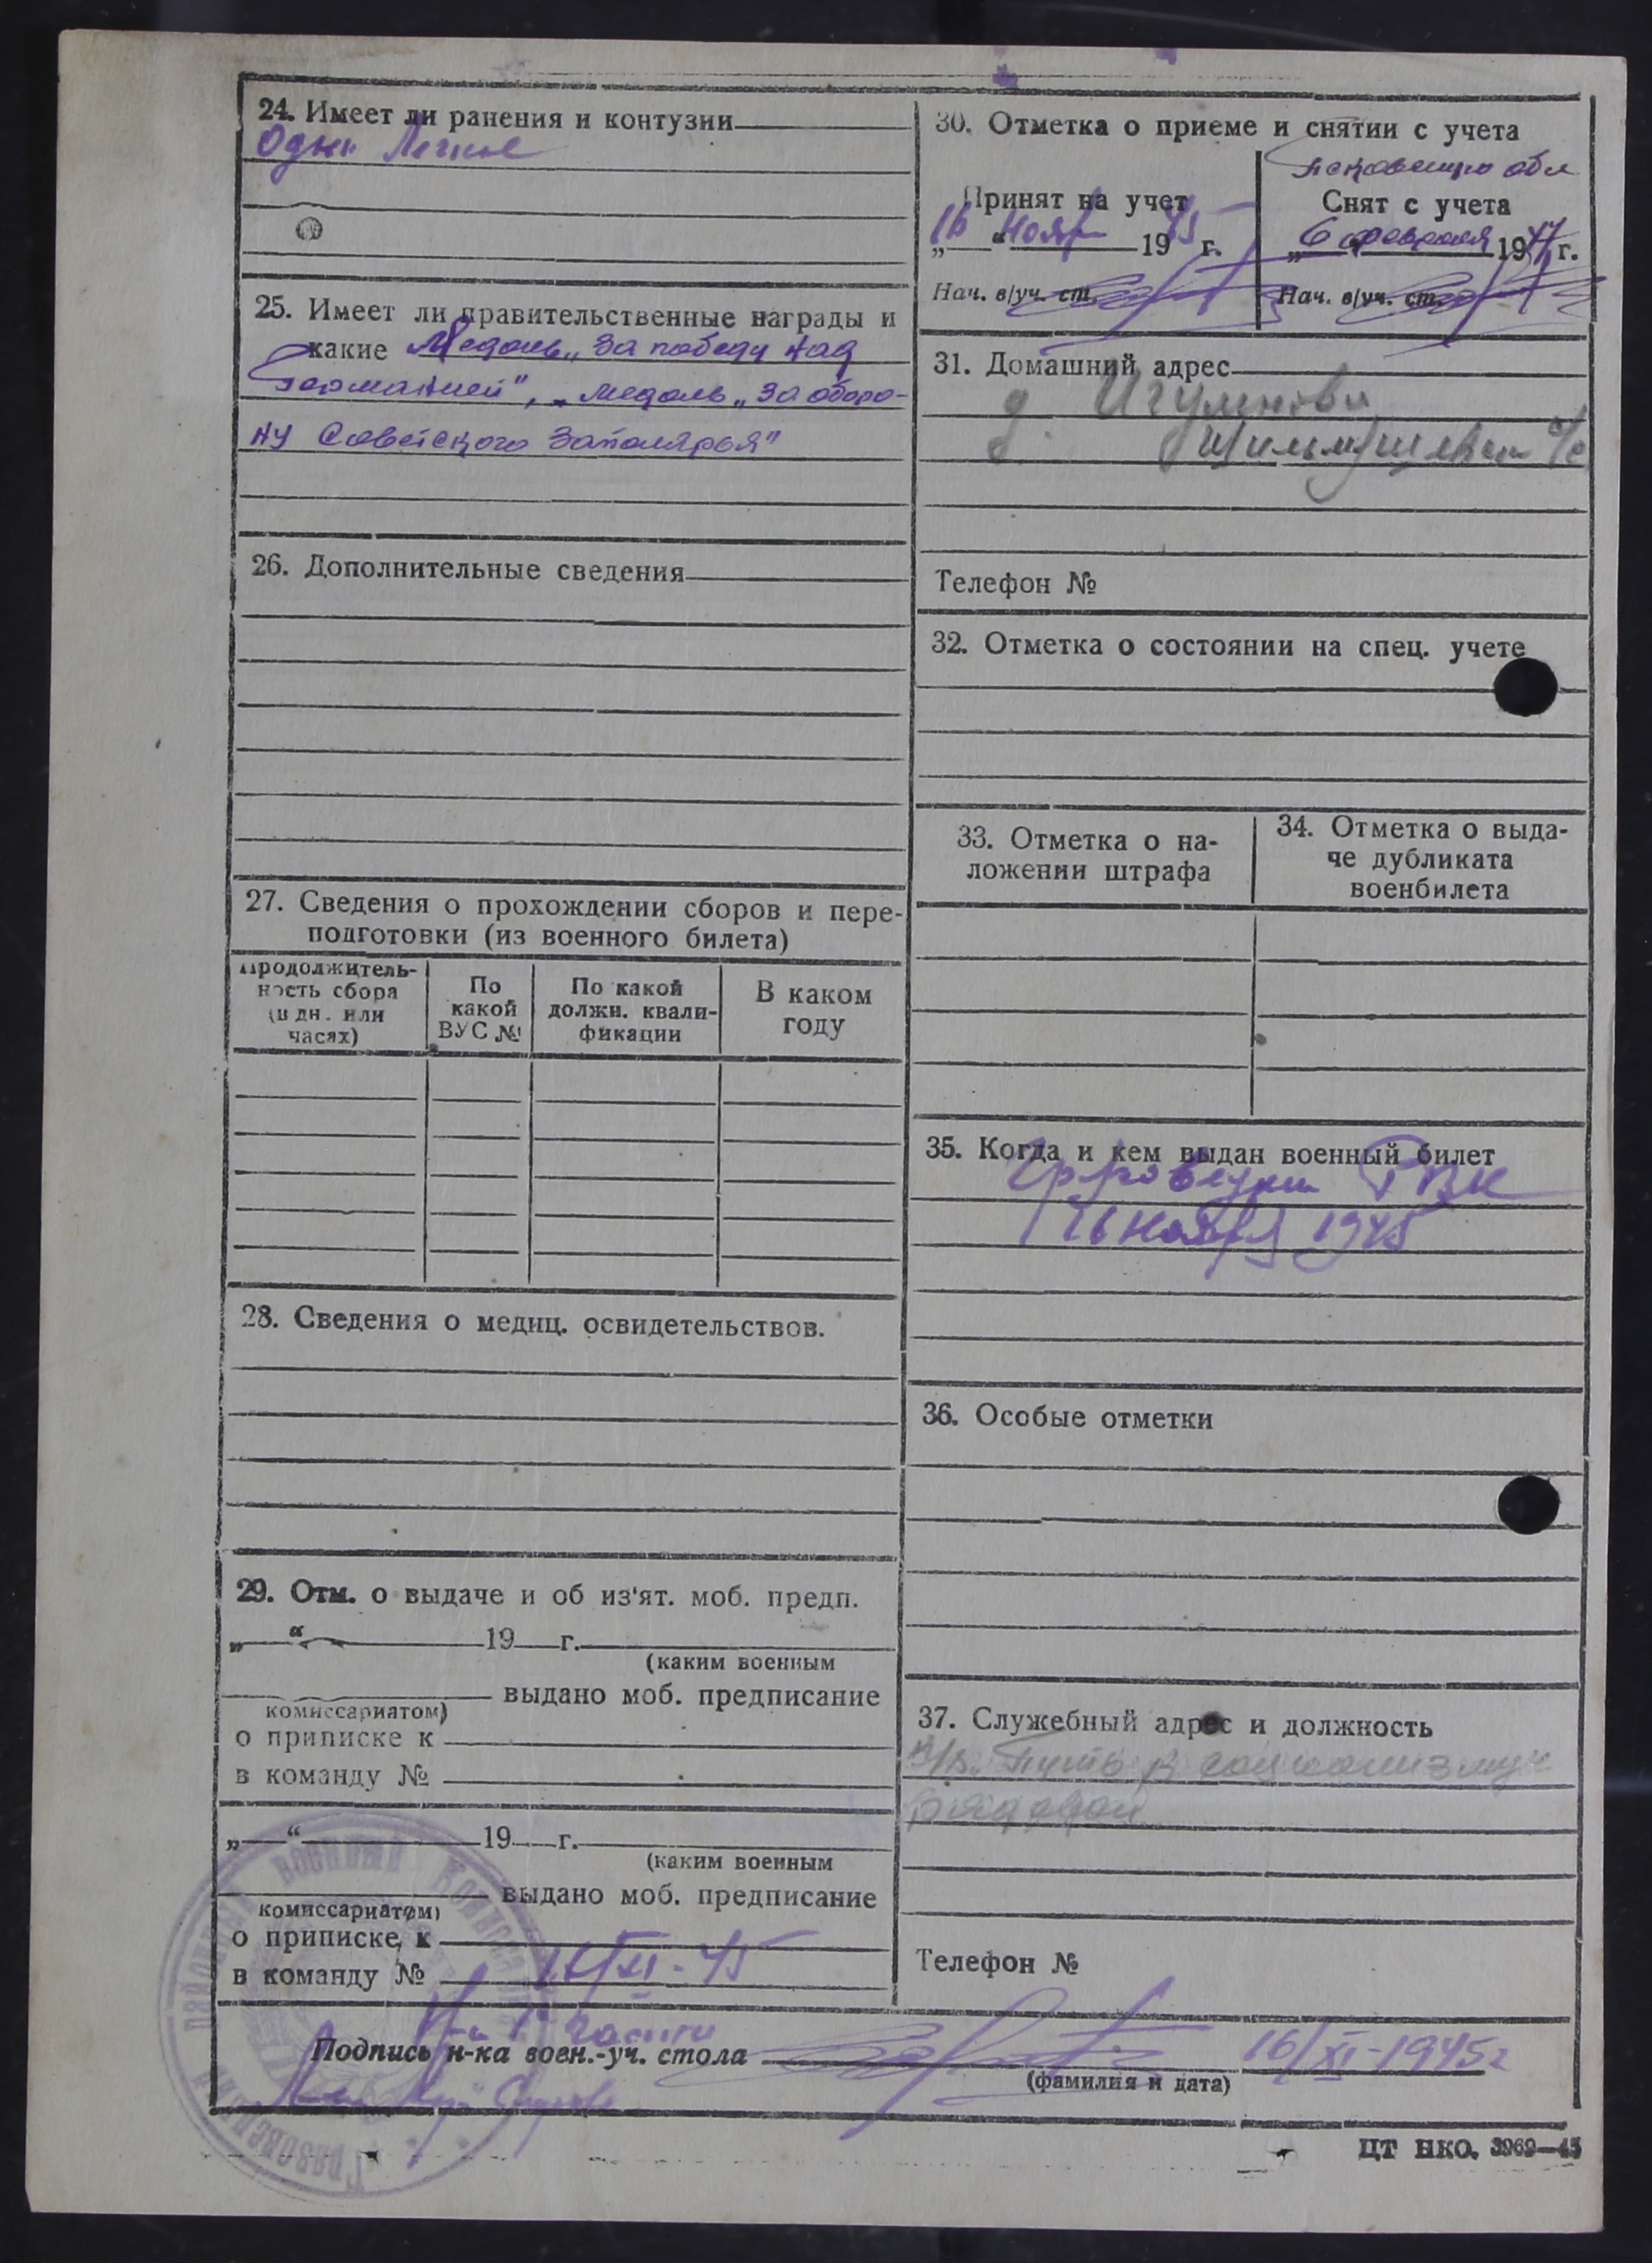 24. Имеет ли ранения и контузии
Одно Легкое
25. Имеет ли правительственные награды и
какие Медаль „За победу над
Германией", медаль „За оборо-
ну Советского Заполярья"
26. Дополнительные сведения
27. Сведения о прохождении сборов и пере-
подготовки (из военного билета)
Продолжитель-
ность сбора
(в дн. или
часах)
По
какой
ВУС №
По какой
должн. квали-
фикации
В каком
году
28. Сведения о медиц. освидетельствов.
29. Отм. о выдаче и об из'ят. моб. предп.
„ “ 19 г.
(каким военным
выдано моб. предписание
комиссариатом)
о приписке к
в команду №
„ “ 19 г.
(каким военным
выдано моб. предписание
комиссариатом)
о приписке к
в команду №
16/XI-45
30. Отметка о приеме и снятии с учета
Псковскую обл
Принят на учет
„16“ Ноября 1945 г.
Нач. в/уч. ст.
Снят с учета
„6“ февраля 1947 г.
Нач. в/уч. ст.
31. Домашний адрес
д.
с/с
Телефон №
32. Отметка о состоянии на спец. учете
33. Отметка о на-
ложении штрафа
34. Отметка о выда-
че дубликата
военбилета
35. Когда и кем выдан военный билет
РВК
16 ноября 1945
36. Особые отметки
37. Служебный адрес и должность
Путь к социализму
рядовой
Телефон №
1 части
Подпись н-ка воен.-уч. стола
16/XI-1945г
(фамилия и дата)
ЦТ НКО. 3969—45